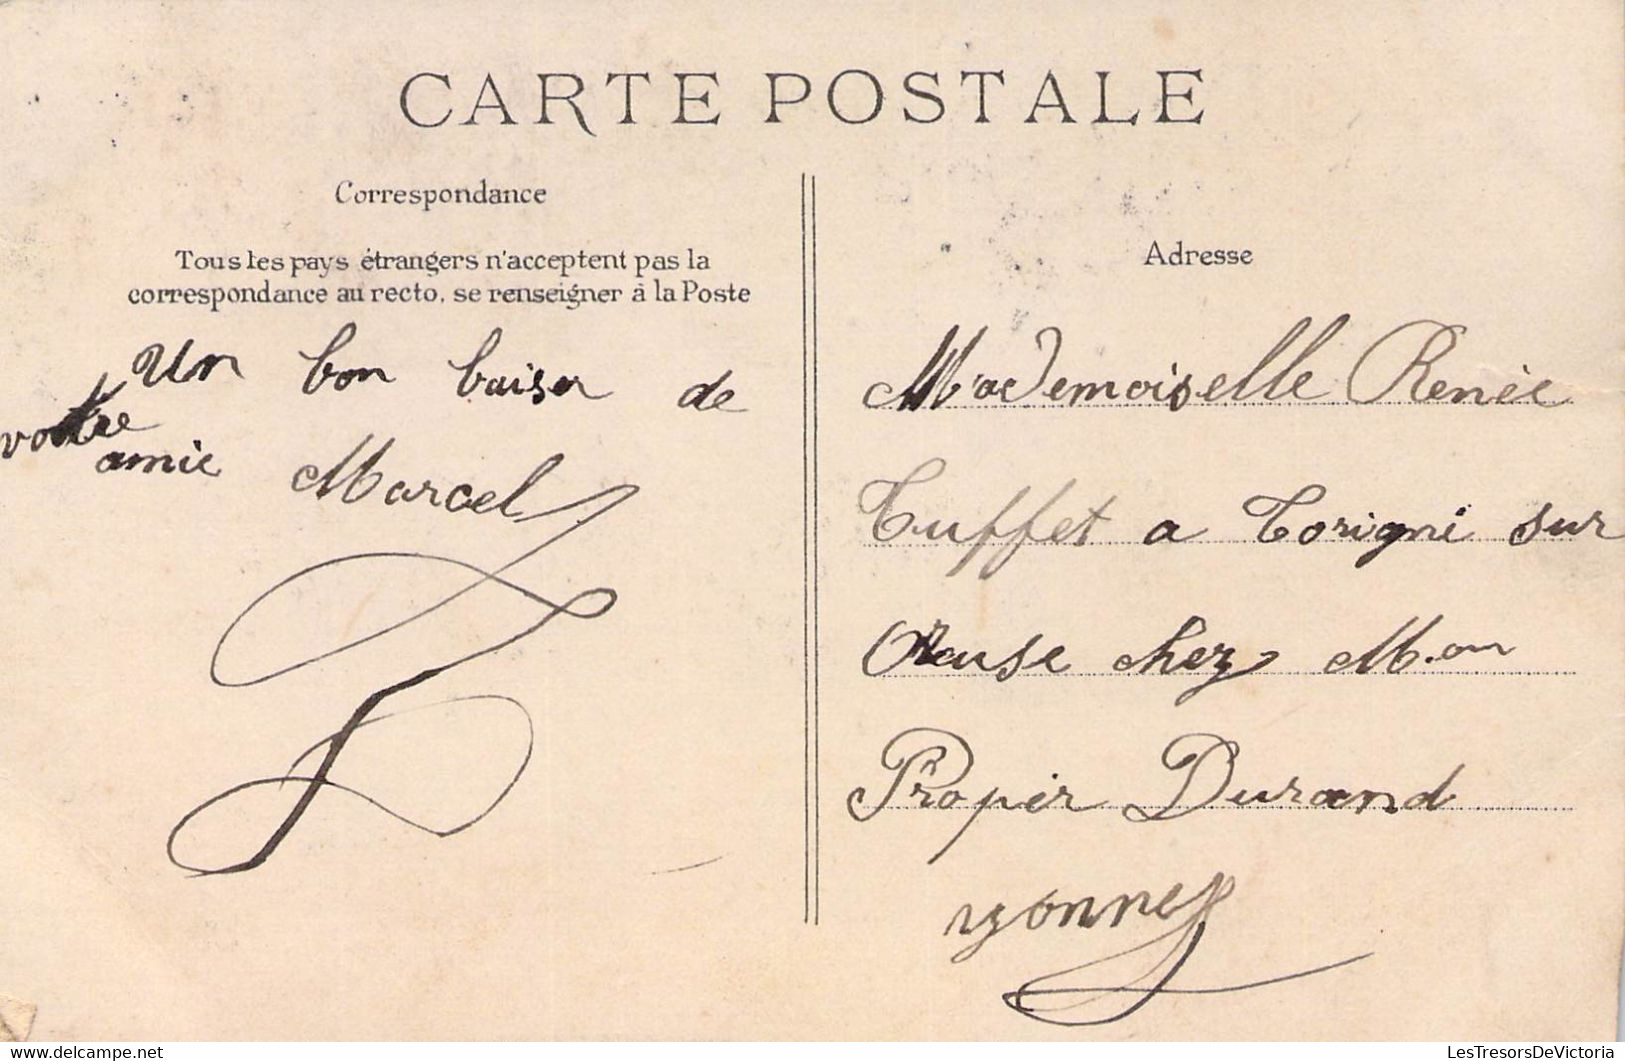 CARTE POSTALE
Correspondance
Tous les pays étrangers n'acceptent pas la
correspondance au recto, se renseigner à la Poste
Un bon baiser de
votre
amie Marcel
Adresse
Mademoiselle Renée
Tuffet a Torigni sur
Oreuse chez M.on
Propér Durand
yonne
www.delcampe.net
LesTresorsDeVictoria